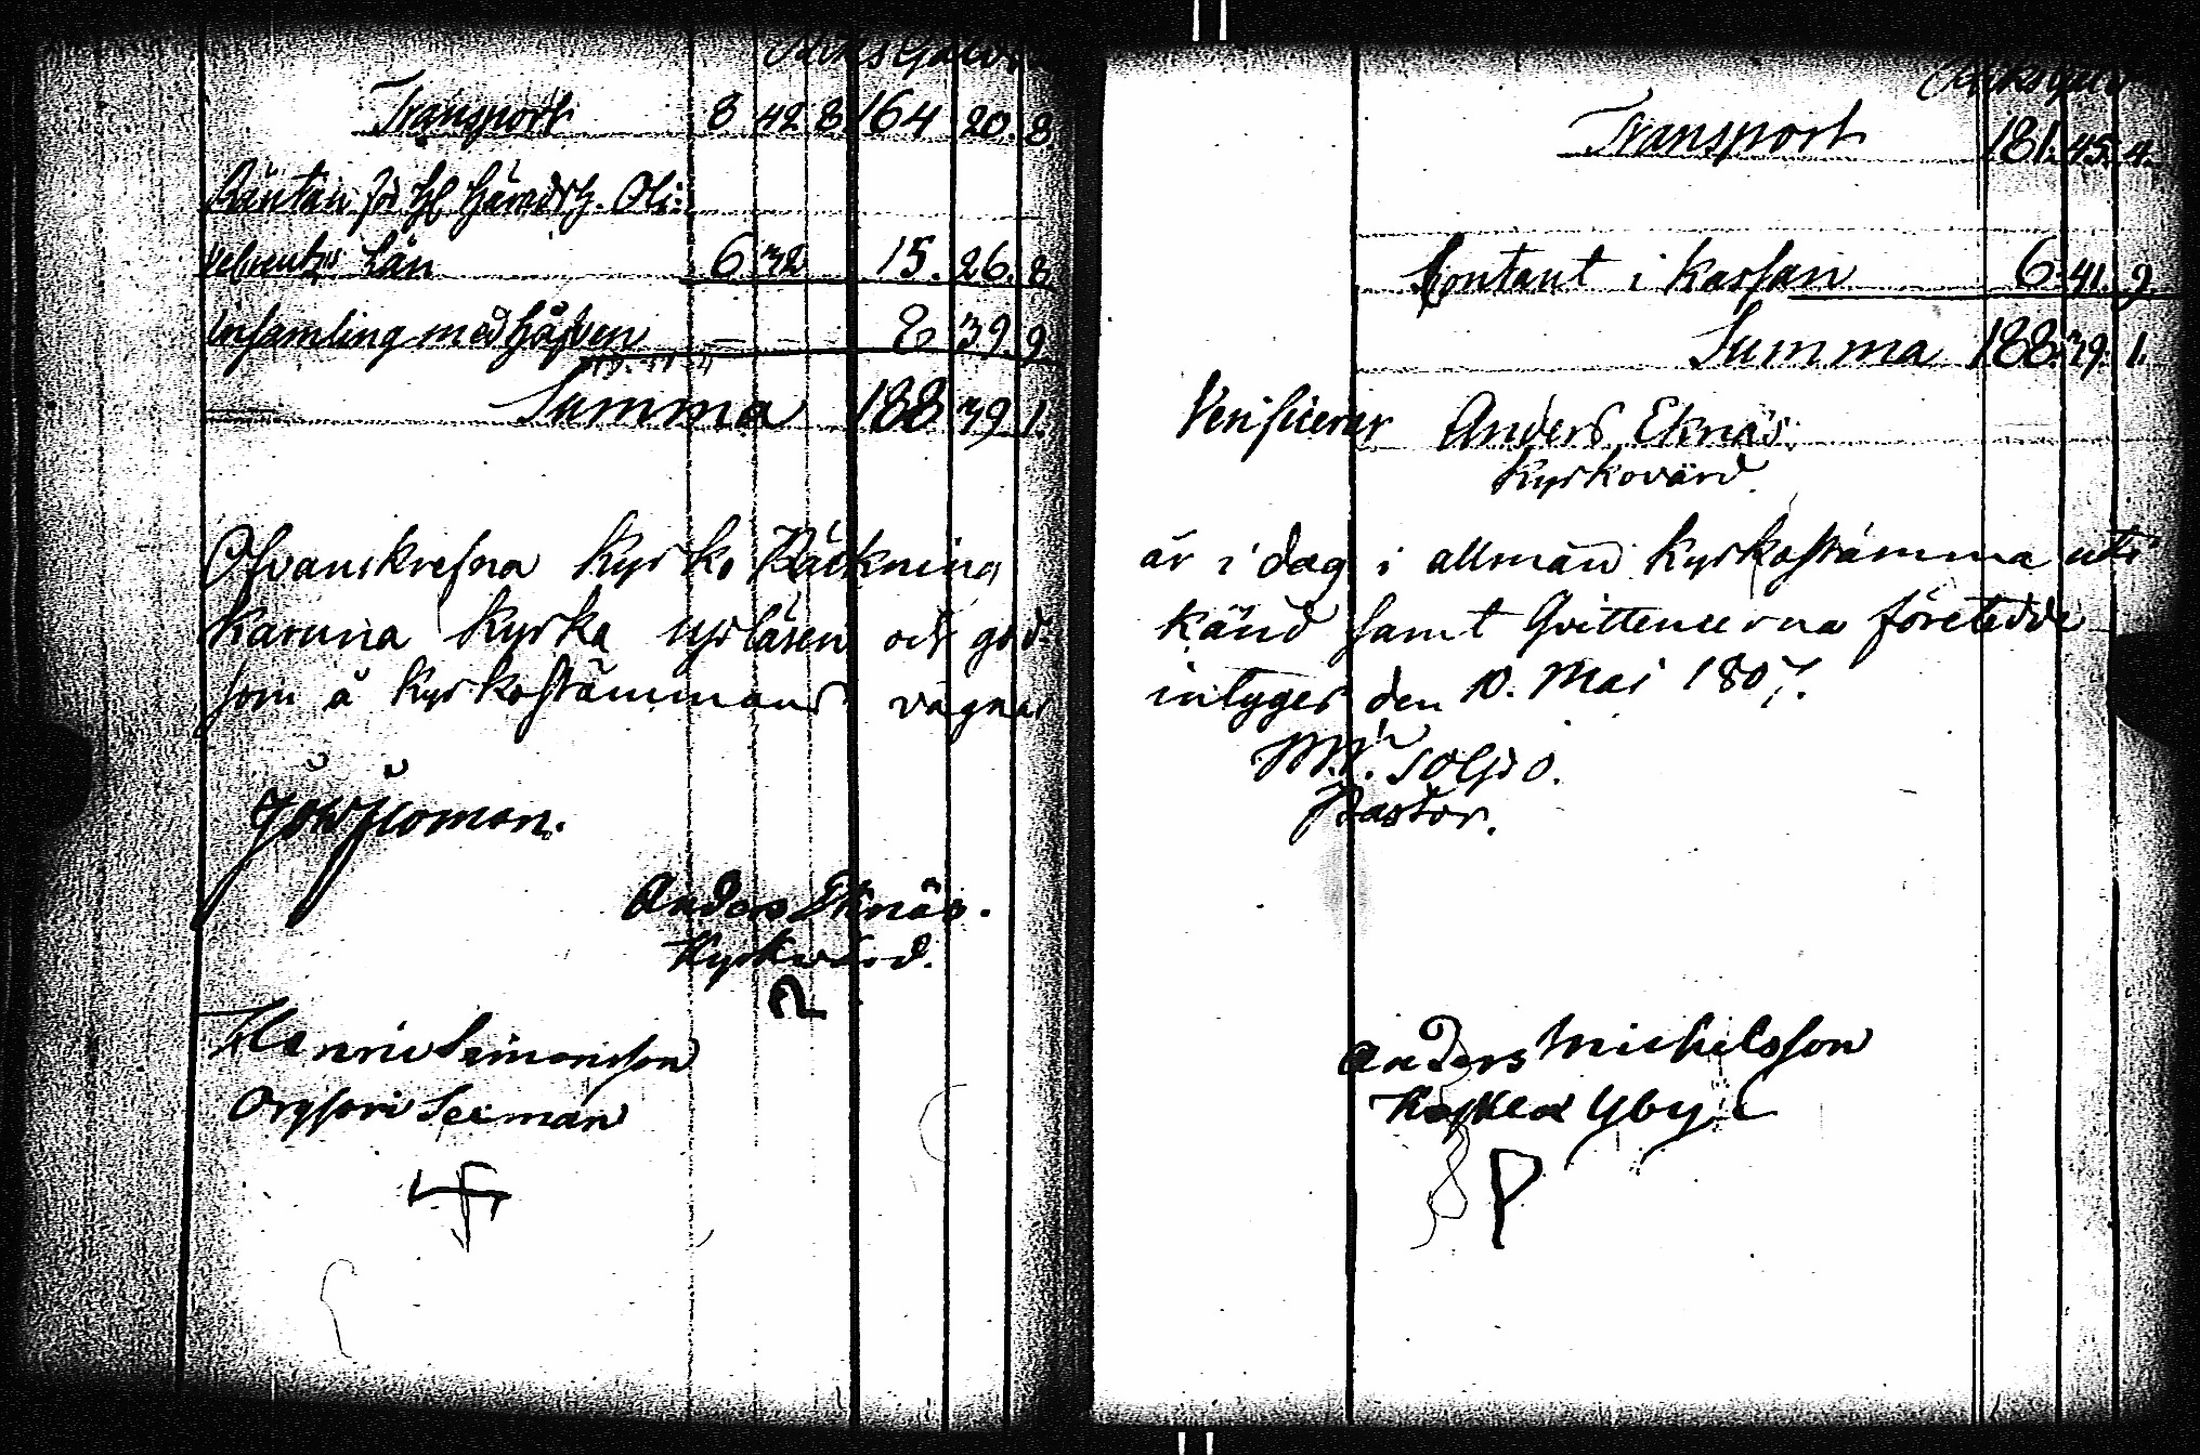 RiksGäld
Transport 8 42 8 164 20. 8
Räntan för H Häradsh. Oli:
vecreutz's Lån 6 32 15. 26. 8
Insamling med håfven — — 8 39. 9
Summa 188 39 1.
Ofvanskrefna Kyrko Räckning
Karuna Kyrka upläsen och god-
som å Kyrkostämmans vägnar
Anders Eknäs.
Kyrkwärd.
Henric Simonsson
Seeman
RiksGäld
Transport 181. 45. 4.
Contant i Kassan 6. 41. 9
Summa 188. 39. 1.
Verificerar Anders Eknäs.
Kyrkovärd
är i dag i allmän Kyrkostämma uti
känd samt Qvittencerna företedde
intyges den 10. Maj 1807.
Pastor.
Anders Michelsson
Yby
P